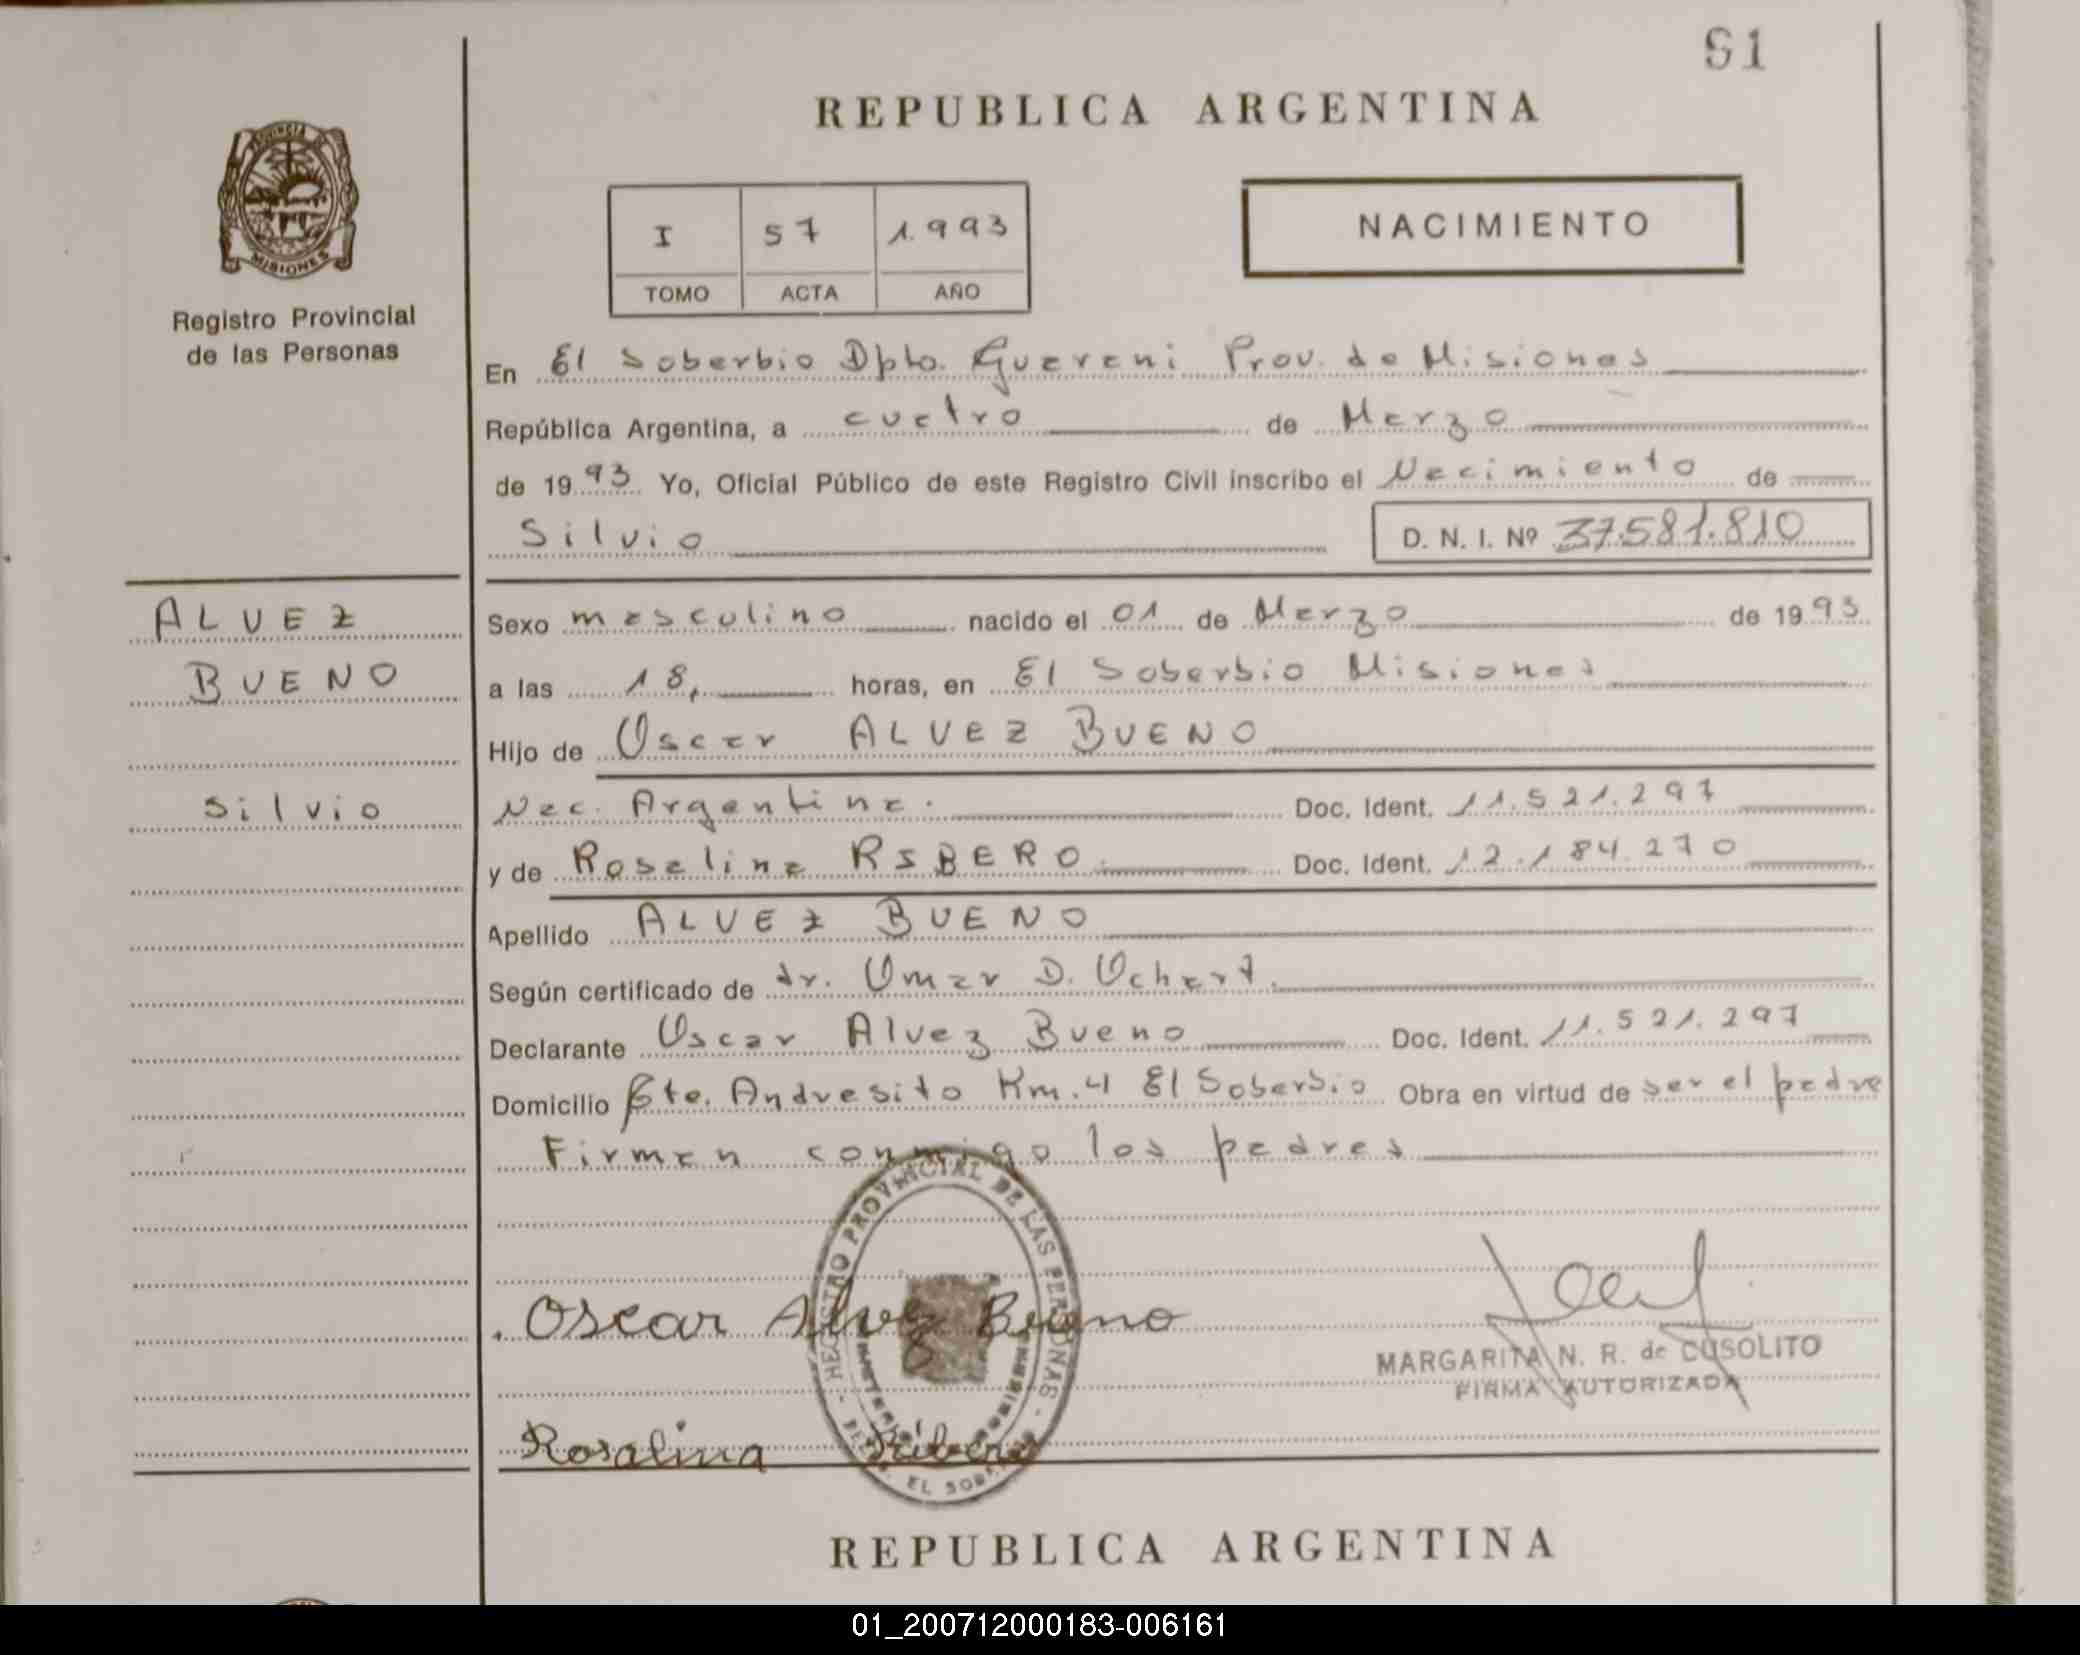 91
REPUBLICA ARGENTINA
PROVINCIA DE
MISIONES
Registro Provincial
de las Personas
I 57 1.993
TOMO ACTA AÑO
NACIMIENTO
En El Soberbio Dpto. Guarani Prov. de Misiones
República Argentina, a cuatro de Marzo
de 1993 Yo, Oficial Público de este Registro Civil inscribo el Nacimiento de
Silvio D. N. I. Nº 37.581.810
ALVEZ
BUENO
Silvio
Sexo masculino nacido el 01 de Marzo de 1993
a las 18, horas, en El Soberbio Misiones
Hijo de Oscar ALVEZ BUENO
Nac. Argentina. Doc. Ident. 11.521.297
y de Rosalina RIBERO Doc. Ident. 12.184.270
Apellido ALVEZ BUENO
Según certificado de dr. Omar D. Ochart.
Declarante Oscar Alvez Bueno Doc. Ident. 11.521.297
Domicilio Pto. Andresito Km. 4 El Soberbio Obra en virtud de ser el padre
Firman conmigo los padres
REGISTRO PROVINCIAL DE LAS PERSONAS
Oscar Alvez Bueno
MARGARITA N. R. de CUSOLITO
FIRMA AUTORIZADA
Rosalina Ribero
EL SOBERBIO
REPUBLICA ARGENTINA
01_200712000183-006161